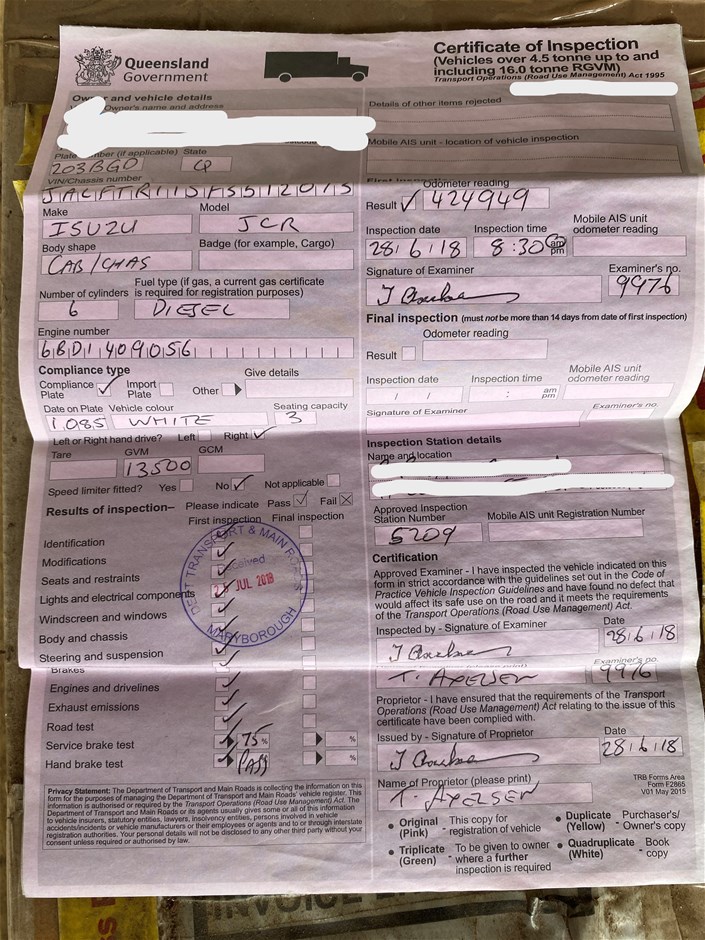 Queensland
Government
Certificate of Inspection
(Vehicles over 4.5 tonne up to and
including 16.0 tonne RGVM)
Transport Operations (Road Use Management) Act 1995
Owner and vehicle details
Owner's name and address
Plate number (if applicable) State
203BGO Q
VIN/Chassis number
Make Model
ISUZU JCR
Body shape Badge (for example, Cargo)
CAB/CHAS
Number of cylinders
Fuel type (if gas, a current gas certificate
is required for registration purposes)
6 DIESEL
Engine number
6BD1409056
Compliance type
Compliance Plate ✓
Import Plate
Other
Give details
Date on Plate Vehicle colour Seating capacity
1085 WHITE 3
Left or Right hand drive? Left Right ✓
Tare GVM GCM
13500
Speed limiter fitted? Yes No ✓ Not applicable
Results of inspection– Please indicate Pass ✓ Fail ☒
First inspection Final inspection
Identification ✓
Modifications ✓
Seats and restraints ✓
Lights and electrical components ✓
Windscreen and windows ✓
Body and chassis ✓
Steering and suspension ✓
Brakes ✓
Engines and drivelines ✓
Exhaust emissions ✓
Road test ✓
Service brake test ✓ 75 % %
Hand brake test ✓ PASS %
DEPT TRANSPORT & MAIN ROADS
Received
JUL 2018
MARYBOROUGH
Privacy Statement: The Department of Transport and Main Roads is collecting the information on
this form for the purposes of managing the Department of Transport and Main Roads' vehicle register. This
information is authorised or required by the Transport Operations (Road Use Management) Act. The
Department of Transport and Main Roads or its agents usually gives some or all of this information
to vehicle insurers, statutory entities, lawyers, insolvency entities, persons involved in vehicle
accidents/incidents or vehicle manufacturers or their employees or agents and to or through interstate
registration authorities. Your personal details will not be disclosed to any other third party without your
consent unless required or authorised by law.
Details of other items rejected
Mobile AIS unit - location of vehicle inspection
First Inspection
Odometer reading
Result ✓ 424949
Inspection date Inspection time
Mobile AIS unit
odometer reading
28/6/18 8:30 am pm
Signature of Examiner Examiner's no.
9976
Final inspection (must not be more than 14 days from date of first inspection)
Odometer reading
Result
Inspection date Inspection time
Mobile AIS unit
odometer reading
/ / : am pm
Signature of Examiner Examiner's no.
Inspection Station details
Name and location
Approved Inspection
Station Number
Mobile AIS unit Registration Number
5209
Certification
Approved Examiner - I have inspected the vehicle indicated on this
form in strict accordance with the guidelines set out in the Code of
Practice Vehicle Inspection Guidelines and have found no defect that
would affect its safe use on the road and it meets the requirements
of the Transport Operations (Road Use Management) Act.
Inspected by - Signature of Examiner Date
28/6/18
Examiner's no.
T. AXELSEN 9976
Proprietor - I have ensured that the requirements of the Transport
Operations (Road Use Management) Act relating to the issue of this
certificate have been complied with.
Issued by - Signature of Proprietor Date
28/6/18
Name of Proprietor (please print)
T. AXELSEN
TRB Forms Area
Form F2865
V01 May 2015
• Original (Pink) - This copy for registration of vehicle
• Duplicate (Yellow) - Purchaser's/Owner's copy
• Triplicate (Green) - To be given to owner where a further inspection is required
• Quadruplicate (White) - Book copy
INVOICE